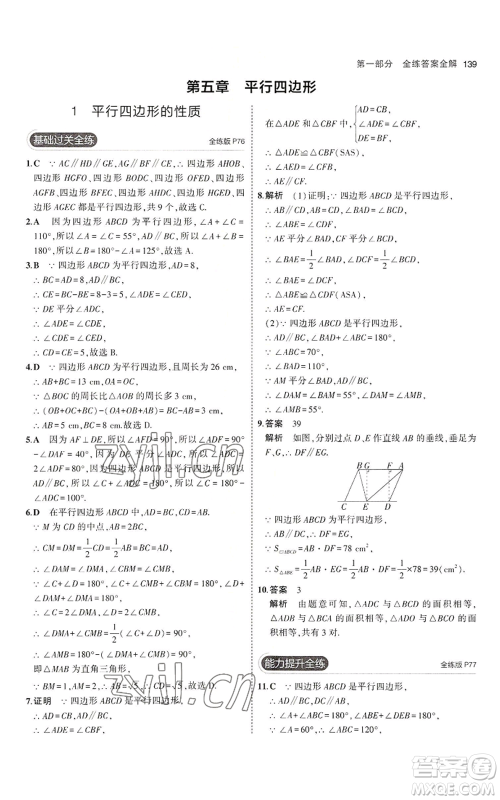 第一部分 全练答案全解 139
第五章 平行四边形
1 平行四边形的性质
基础过关全练
全练版 P76
1.C ∵ AC∥HD∥GE, AD∥FG∥BE, ∴ 四边形 AHOB、
四边形 HCFO、四边形 BODC、四边形 OFED、四边形
AGFB、四边形 BFEC、四边形 AHDC、四边形 AHDC、四
边形 AGEC 都是平行四边形,共 9 个,故选 C.
2.A 因为四边形 ABCD 为平行四边形,∠A+∠C=
110°,所以∠A=∠C=55°,AD∥BC,所以∠A+∠B=
180°,所以∠B=180°-∠A=125°.故选 A.
3.B ∵ 四边形 ABCD 为平行四边形,AD=8,
∴ BC=AD=8,AD∥BC,
∴ CE=BC-BE=8-3=5,∠ADE=∠CED,
∵ DE 平分∠ADC,
∴ ∠ADE=∠CDE,
∴ ∠CDE=∠CED,
∴ CD=CE=5,故选 B.
4.D ∵ 平行四边形 ABCD 的周长为 26 cm,
∴ AB+AD=13 cm,OA=OC.
∵ △BOC 的周长比△AOB 的周长多 3 cm,
∴ (OB+OC+BC)-(OA+OB+AB)=BC-AB=3 cm,
∴ BC=AD=8 cm.故选 D.
5.A 因为 AF⊥DE,所以∠AFD=90°,所以∠ADF=90°
-∠DAF=40°,因为 DE 平分∠ADC,所以∠ADC=
2∠ADF=80°,因为四边形 ABCD 是平行四边形,所以
∠B=∠ADC=80°.故选 A.
6.D 在平行四边形 ABCD 中,CD=AB=2,
∵ M 为 CD 的中点,AD=BC=1,
∴ CM=DM=1/2CD=1=BC=AD,
∴ ∠DAM=∠DMA,∠CBM=∠CMB,
∵ ∠C+∠D=180°,
∴ ∠C=2∠DMA,∠D=2∠CMB,
∴ ∠DMA+∠CMB=1/2(∠C+∠D)=90°,
∴ ∠AMB=180°-(∠DMA+∠CMB)=90°,
即△MAB 为直角三角形,
∵ BM=1,AM=2,∴ CD=AB=√5,故选 D.
7.证明 ∵ 四边形 ABCD 是平行四边形,
∴ AD=BC,AD∥BC,
∴ ∠ADE=∠CBF,
在△ADE 和△CBF 中,{AD=CB,
∠ADE=∠CBF,
DE=BF,
∴ △ADE≌△CBF(SAS),
∴ ∠AED=∠CFB,
∴ AE∥CF.
8.解析 (1)证明:∵ 四边形 ABCD 是平行四边形,
∴ ∠B=∠D,AB=CD,∠BAD=∠DCB,
∵ AE 平分∠BAD,CF 平分∠BCD,
∴ ∠BAE=1/2∠BAD,∠DCF=1/2∠BCD,
∴ ∠BAE=∠DCF,
∴ △ABE≌△CDF(ASA),
∴ AE=CF.
(2)∵ 四边形 ABCD 是平行四边形,
∴ AD∥BC,
∴ ∠B+∠BAD=180°,
∵ ∠B=40°,
∴ ∠BAD=140°,
∵ AM 平分∠BAD,
∴ ∠DAM=1/2∠BAD=70°.
9.答案 39
解析 如图,分别过点 D,E 作直线 AB 的垂线,垂足为
F,G,则 DF∥EG.
B G F A
C E D
∵ 四边形 ABCD 是平行四边形,
∴ AB∥CD,∴ DF=EG.
∵ S▱ABCD=AB·DF=78 cm²,
∴ S△ABE=1/2AB·EG=1/2AB·DF=1/2×78=39(cm²).
10.答案 3
解析 由题意可知,△ADC 与△ABC 的面积相等,
△ADB 与△BCD 的面积相等,△ADO 与△BCO 的面
积相等,∴ 图中面积相等的三角形有 3 对.
能力提升全练
全练版 P77
11.C ∵ 四边形 ABCD 是平行四边形,
∴ AD=BC,AD∥BC,
∴ ∠A+∠ABC=180°,
∵ ∠A=60°,∴ ∠ABC=120°,
zyjl.cn
zyjl.cn
答案圈
MXQE.COM